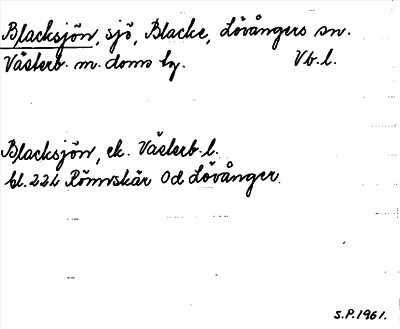 Blacksjön, sjö, Blacke, Lövångers sn.
Västerb. m. doms lg. Vb. l.
Blacksjön, ek. Västerb. l.
bl. 221 Römvskär Od Lövånger
S.P. 1961.